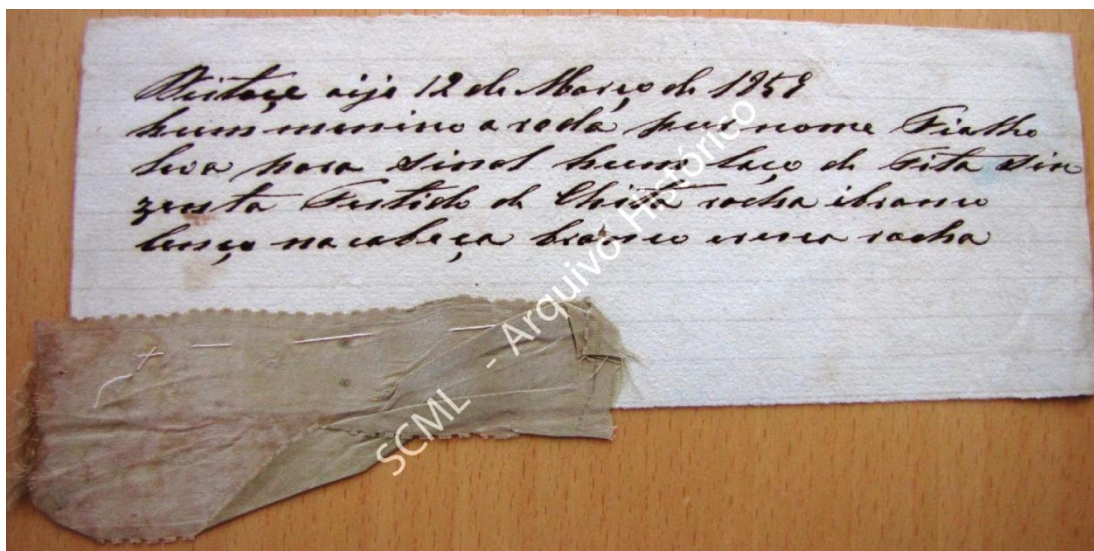 Deitace oije 12 de Março de 1858
hum menino a roda por nome Fialho
leva para sinal hum laço de Fita sin
zenta Festido de Chita rocha ibranco
lenço na cabeça branco rocha
SCML - Arquivo Histórico